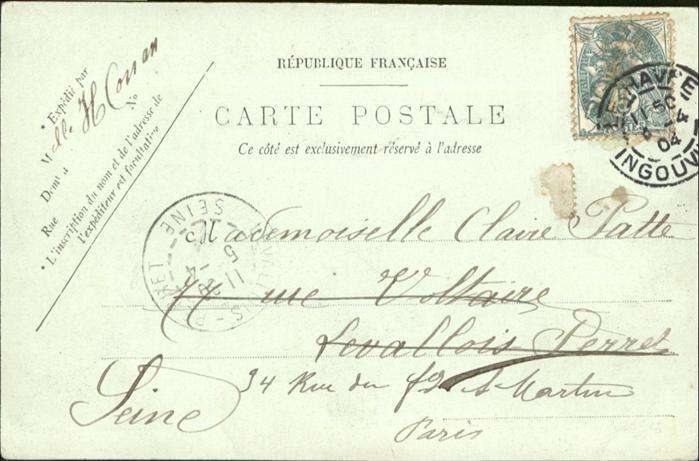 RÉPUBLIQUE FRANÇAISE
CARTE POSTALE
Ce côté est exclusivement réservé à l'adresse
• Expédié par
Melle H
Dem$^t$ à
Rue N°
• L'inscription du nom et de l'adresse de
l'expéditeur est facultative
HAVRE
04
INGOUV
SEINE
Mademoiselle Claire Patte
rue Voltaire
Levallois Perret
34 Rue du fg St Martin
Seine
Paris